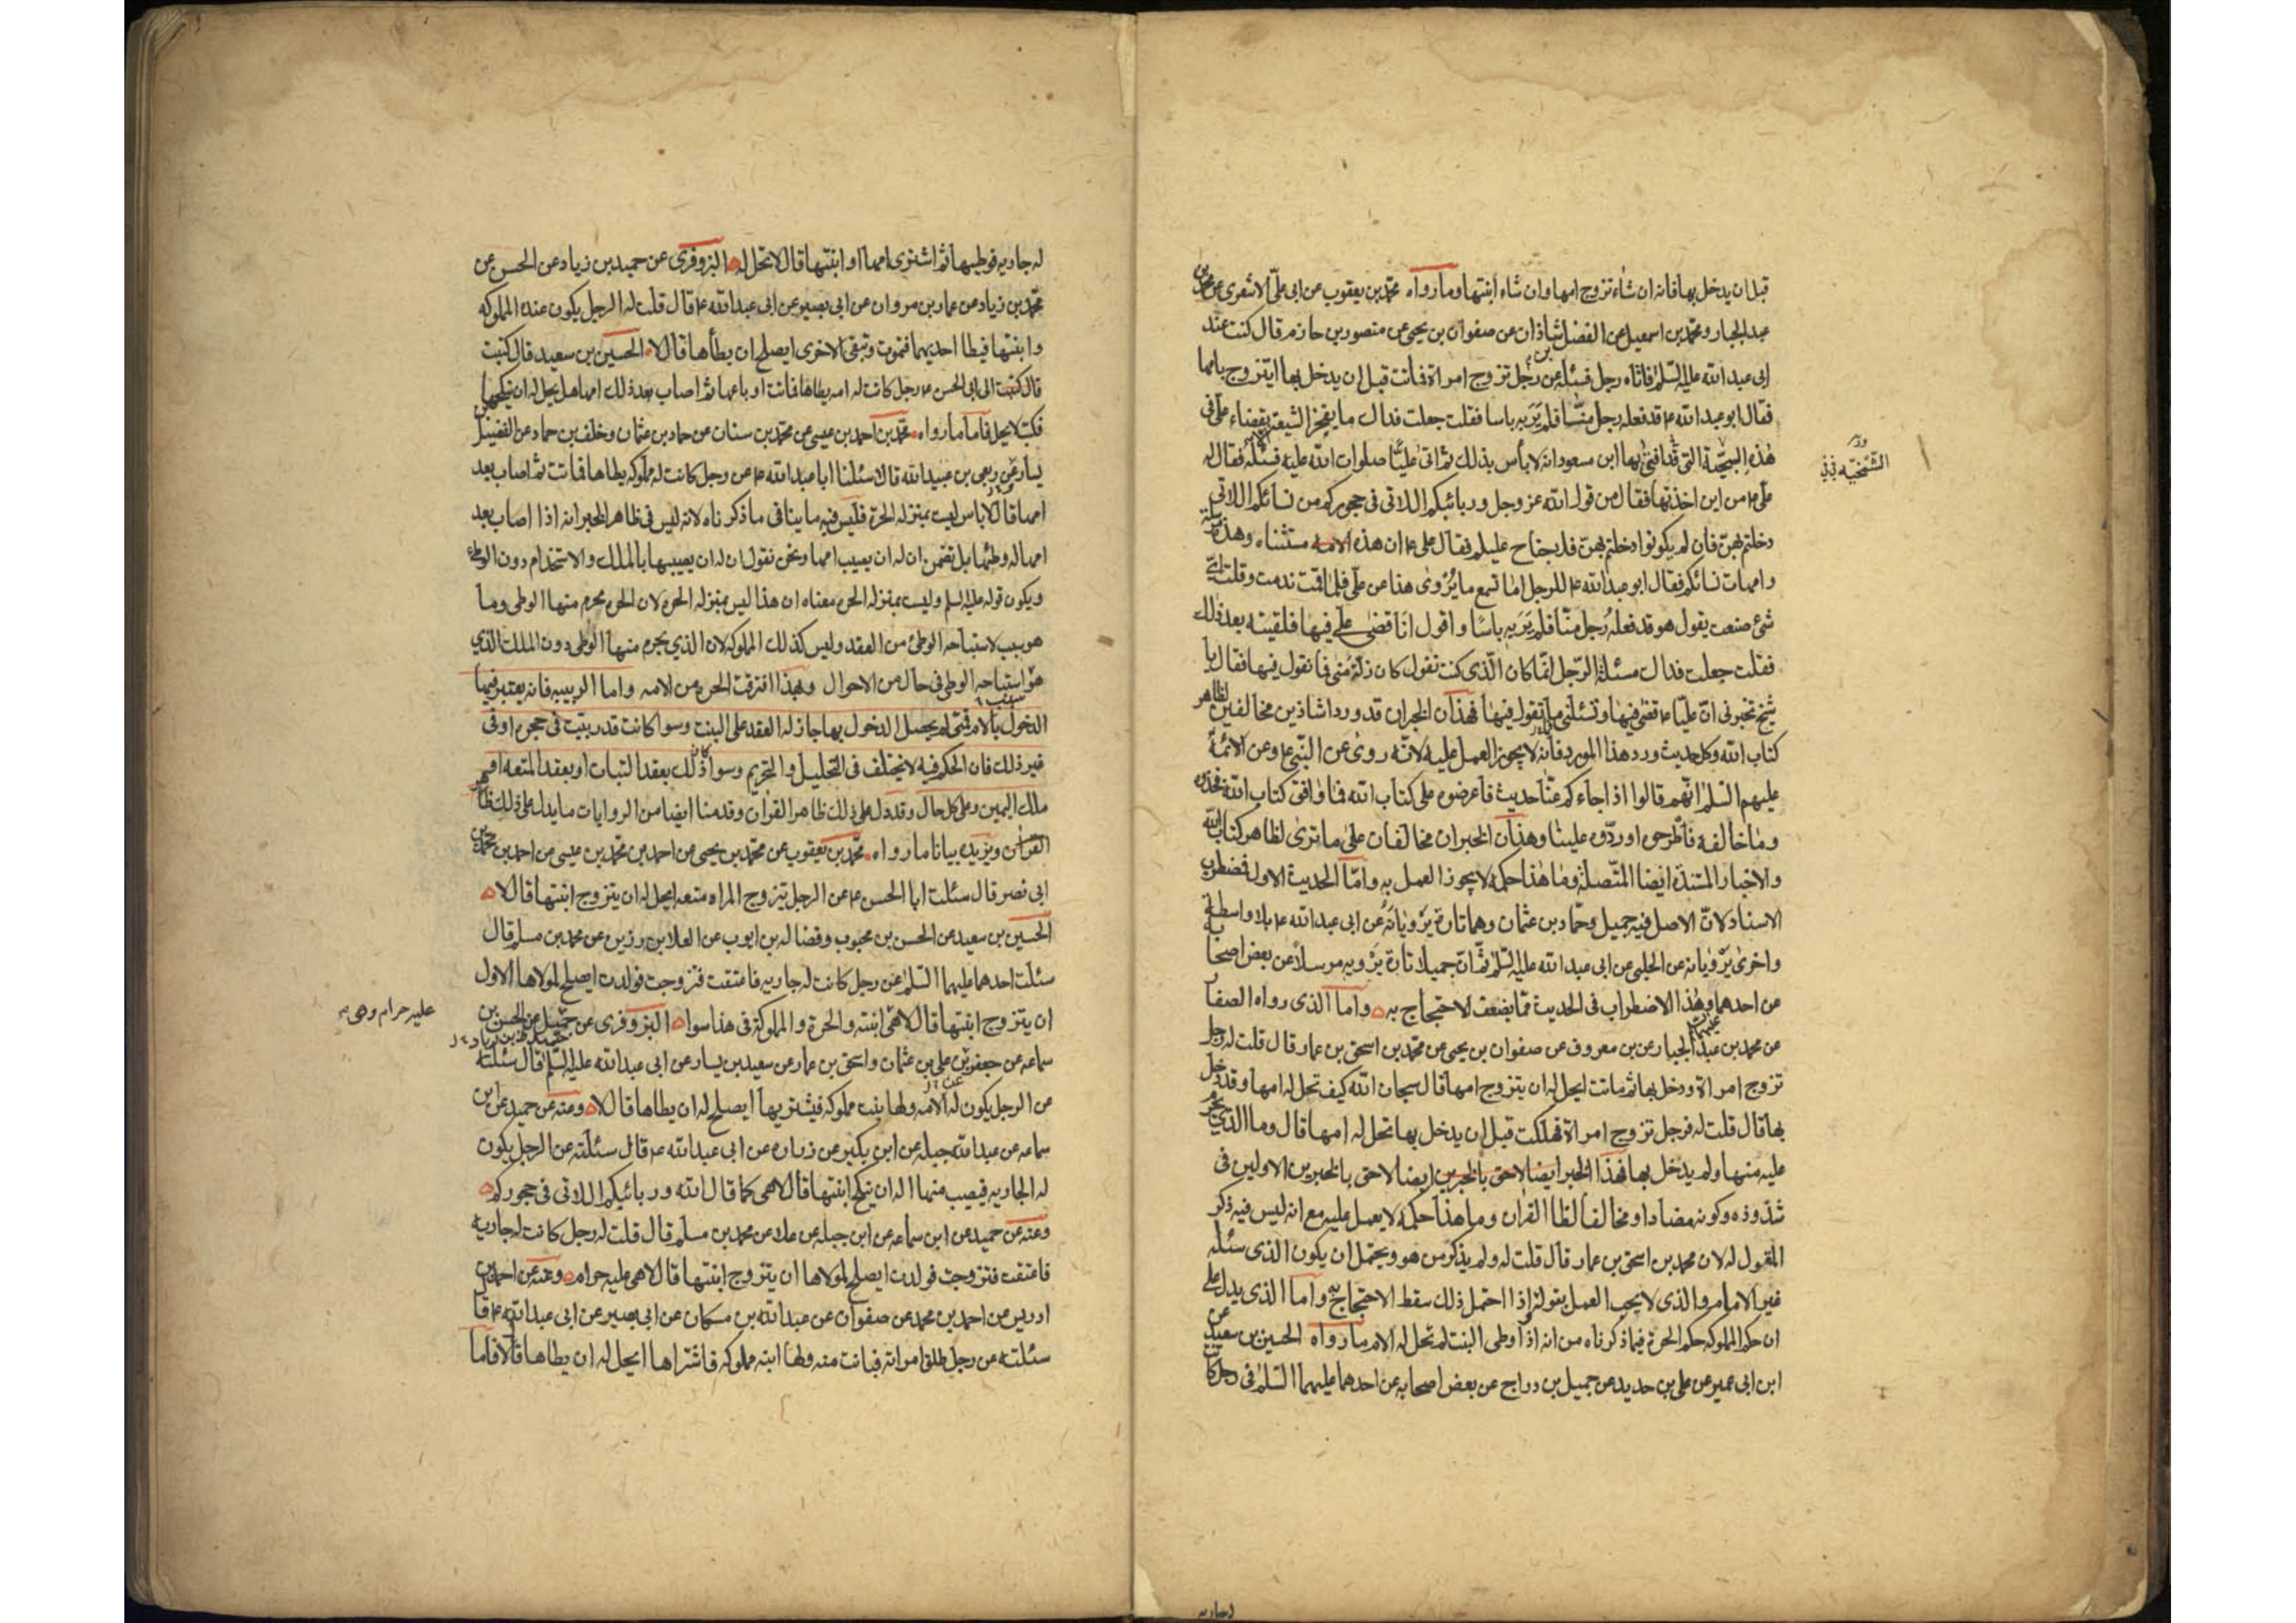 قبل ان يدخل بها فانه ان شاء تزوج امها وان شاء ابنتها وما رواه محمد بن يعقوب عن ابي علي الاشعري عن محمد بن
عبد الجبار ومحمد بن اسمعيل عن الفضل شاذان عن صفوان بن يحيى عن منصور بن حازم قال كنت عند
بن
ابي عبد الله عليه السلم فاتاه رجل فسئله عن رجل تزوج امراة فماتت قبل ان يدخل بها ايتزوج بامها
فقال ابو عبد الله ع قد فعله رجل منا فلم ير به باسا فقلت جعلت فداك ما يفخر الشيعة بقضاء علي في
هذه التي افتى بها ابن مسعود انه لا بأس بذلك ثم اتى عليا صلوات الله عليه فسئله فقال له
الشمخية
علي ع من اين اخذتها فقال من قول الله عز وجل وربائبكم اللاتي في حجوركم من نسائكم اللاتي
دخلتم بهن فان لم يكونوا دخلتم بهن فلا جناح عليكم فقال علي ع ان هذه مستثناه وهذه مرسلة
وامهات نسائكم فقال ابو عبد الله ع للرجل اما تسمع ما يروى هذا عن علي فلما قمت ندمت وقلت اي
شيء صنعت يقول هو قد فعله رجل منا فلم ير به باسا واقول انا قضى علي فيها فلقيته بعد ذلك
فقلت جعلت فداك مسئلة الرجل انما كان الذي كنت تقول كان زلة مني فما تقول فيها فقال يا
شيخ تخبرني ان عليا ع قضى فيها وتسئلني ما تقول فيها فهذان الخبران قد وردا شاذين مخالفين لظاهر
كتاب الله وكل حديث ورد هذا المورد فانه لا يجوز العمل عليه لانه روى عن النبي ع وعن الائمة
عليهم السلم انهم قالوا اذا جاءكم عنا حديث فاعرضوه على كتاب الله فما وافق كتاب الله فخذوه
وما خالفه فاطرحوه او ردوه علينا وهذان الخبران مخالفان على ما ترى لظاهر كتاب الله
والاخبار المسندة ايضا المتصلة وما هذا حكمه لا يجوز العمل به واما الحديث الاول فمضطرب
الاسناد لان الاصل فيه جميل وحماد بن عثمان وهما تارة يرويانه عن ابي عبد الله ع بلا واسطة
واخرى يرويانه عن الحلبي عن ابي عبد الله عليه السلم ثم ان جميلا تارة يرويه مرسلا عن بعض اصحابه
عن احدهما وهذا الاضطراب في الحديث مما يضعف الاحتجاج به واما الذي رواه الصفار
عن محمد بن عبد الجبار عن بن معروف عن صفوان بن يحيى عن محمد بن اسحق بن عمار قال قلت له رجل
تزوج امراة ودخل بها ثم ماتت ايحل له ان يتزوج امها قال سبحان الله كيف تحل له امها وقد دخل
بها قال قلت له فرجل تزوج امراة فهلكت قبل ان يدخل بها تحل له امها قال وما الذي يحرم
عليه منها ولم يدخل بها فهذا الخبر ايضا لاحق بالخبرين ايضا لاحق بالخبرين الاولين في
شذوذه وكونه مضادا ومخالفا لظا القران وما هذا حكمه لا يعمل عليه مع انه ليس فيه ذكر
المقول له لان محمد بن اسحق بن عمار قال قلت له ولم يذكر من هو ويحتمل ان يكون الذي سئله
غير الامام والذي لا يجب العمل بقوله واذا احتمل ذلك سقط الاحتجاج به واما الذي يدل على
ان حكم المملوكه حكم الحرة فيما ذكرناه من انه اذا وطى البنت لم تحل له الام ما رواه الحسين بن سعيد عن
ابن ابي عمير عن علي بن حديد عن جميل بن دراج عن بعض اصحابه عن احدهما عليهما السلم في رجل كانت
له جاريه فوطيها ثم اشترى امها او ابنتها قال لا تحل له البزوفري عن حميد بن زياد عن الحسن عن
محمد بن زياد عن عمار بن مروان عن ابي بصير عن ابي عبد الله ع قال قلت له الرجل يكون عنده المملوكه
وابنتها فيطا احديهما فتموت وتبقى الاخرى ايصلح ان يطأها قال لا الحسين بن سعيد قال كتبت
قال كتبت الى ابي الحسن ع رجل كانت له امه يطاها فماتت او باعها ثم اصاب بعد ذلك امها هل يحل له ان ينكحها
فكتب لا يحل فاما ما رواه محمد بن احمد بن عيسى عن محمد بن سنان عن حماد بن عثمان وخلف بن حماد عن الفضيل بن
يسار عن ربعي بن عبيد الله قالا سئلنا ابا عبد الله ع عن رجل كانت له مملوكه يطاها فماتت ثم اصاب بعد
امها قال لا باس ليست بمنزله الحرة فليس فيه ما ينافي ما ذكرناه لانه ليس في ظاهر الخبر انه اذا اصاب بعد
امها له وطئها بل تضمن ان له ان يصيب امها ونحن نقول ان له ان يصيبها بالملك والاستخدام دون الوطى
ويكون قوله عليه السلم وليست بمنزله الحره معناه ان هذا ليس بمنزله الحره لان الحره يحرم منها الوطى وما
هو سبب لاستباحه الوطئ من العقد وليس كذلك المملوكه لان الذي يحرم منها الوطى دون الملك الذي
هو استباحه الوطى في حال من الاحوال وبهذا افترقت الحره من الامه واما الربيبه فانه يعتبر فيها
سبب
الدخول بالام فمتى لم يحصل الدخول بها جاز له العقد على البنت وسوا كانت قد ربيت في حجره او في
غير ذلك فان الحكم فيه لا يختلف في التحليل والتحريم وسوا ذلك بعقد الثبات او بعقد المتعه او
كان
ملك اليمين وعلى كل حال وقد دل على ذلك ظاهر القران وقدمنا ايضا من الروايات ما يدل على ذلك ظاهر
القران ويزيده بيانا ما رواه محمد بن يعقوب عن محمد بن يحيى عن احمد بن محمد بن عيسى عن احمد بن محمد بن
ابي نصر قال سئلت ابا الحسن ع عن الرجل يتزوج المراه متعه ايحل له ان يتزوج ابنتها قال لا
الحسين بن سعيد عن الحسن بن محبوب وفضاله بن ايوب عن العلا بن رزين عن محمد بن مسلم قال
سئلت احدهما عليهما السلم عن رجل كانت له جاريه فاعتقت فتزوجت فولدت ايصلح لمولاها الاول
ان يتزوج ابنتها قال لا هي ابنته والحرة والمملوكة في هذا سوا البزوفري عن حميد عن الحسن بن
عليه حرام وهي
سماعه عن جعفر عن علي بن عثمان واسحق بن عمار عن سعيد بن يسار عن ابي عبد الله عليه السلم قال سئلته
عن الرجل يكون له الامه ولها بنت مملوكه فيشتريها ايصلح له ان يطاها قال لا وعنه عن حميد عن ابن
سماعه عن عبد الله جبله عن ابن بكير عن زراره عن ابي عبد الله ع قال سئلته عن الرجل يكون
له الجاريه فيصيب منها اله ان ينكح ابنتها قال لا هي كما قال الله وربائبكم اللاتي في حجوركم
وعنه عن حميد عن ابن سماعه عن ابن جبله عن علا عن محمد بن مسلم قال قلت له رجل كانت له جارية
فاعتقت فتزوجت فولدت ايصلح لمولاها ان يتزوج ابنتها قال لا هي عليه حرام وعنه عن احمد بن
ادريس عن احمد بن محمد عن صفوان عن عبد الله بن مسكان عن ابي بصير عن ابي عبد الله ع قال
سئلته عن رجل طلق امراته فبانت منه ولها ابنه مملوكه فاشتراها ايحل له ان يطاها قال لا فاما